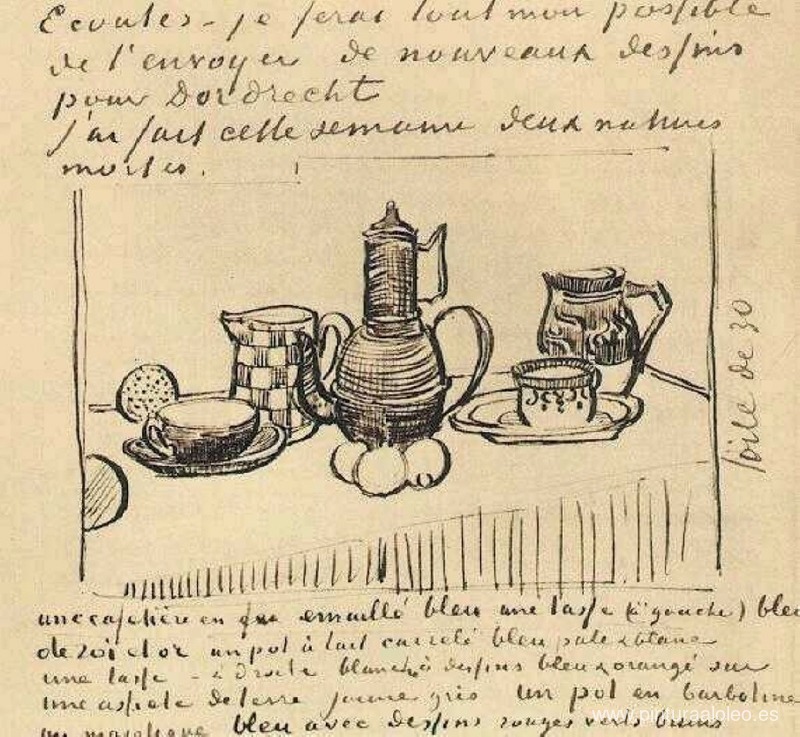 Ecoutes - je ferai tout mon possible
de t'envoyer de nouveaux dessins
pour Dordrecht
J'ai fait cette semaine deux natures
mortes.
Toile de 30
une cafetière en fer emaillé bleu une tasse (à gauche) bleu
de roi et or un pot à lait carrelé bleu pale & blanc
une tasse - à droite blanche à dessins bleu & orangé sur
une assiete de terre jaune gris un pot en barbotine
ou majolique bleu avec dessins rouges verts bruns
www.pinturaaloleo.es